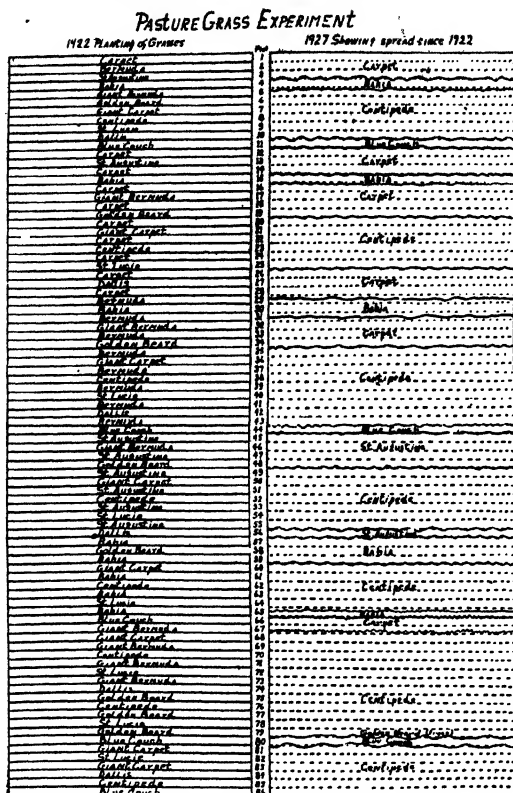 PASTURE GRASS EXPERIMENT
1922 Planting of Grasses
Plot
1927 Showing spread since 1922
Carpet
Bermuda
St Augustine
Bahia
Giant Bermuda
Golden Beard
Giant Carpet
Centipede
St Lucia
Dallis
Blue Couch
Carpet
St Augustine
Carpet
Bahia
Carpet
Giant Bermuda
Carpet
Golden Beard
Carpet
Giant Carpet
Carpet
Centipede
Carpet
St Lucia
Carpet
Dallis
Carpet
Bermuda
Bahia
Bermuda
Giant Bermuda
Bermuda
Golden Beard
Bermuda
Giant Carpet
Bermuda
Centipede
Bermuda
St Lucia
Bermuda
Dallis
Bermuda
Blue Couch
St Augustine
Giant Bermuda
St Augustine
Golden Beard
St Augustine
Giant Carpet
St Augustine
Centipede
St Augustine
St Lucia
St Augustine
Dallis
Bahia
Golden Beard
Bahia
Giant Carpet
Bahia
Centipede
Bahia
St Lucia
Bahia
Blue Couch
Giant Bermuda
Giant Carpet
Giant Bermuda
Centipede
Giant Bermuda
St Lucia
Giant Bermuda
Dallis
Golden Beard
Centipede
Golden Beard
St Lucia
Golden Beard
Blue Couch
Giant Carpet
St Lucia
Giant Carpet
Dallis
Centipede
Blue Couch
Carpet
Bahia
Centipede
Blue Couch
Carpet
Bahia
Carpet
Centipede
Carpet
Bahia
Carpet
Centipede
Blue Couch
St Augustine
Centipede
St Augustine
Bahia
Centipede
Bahia
Carpet
Centipede
Golden Beard
Blue Couch
Centipede